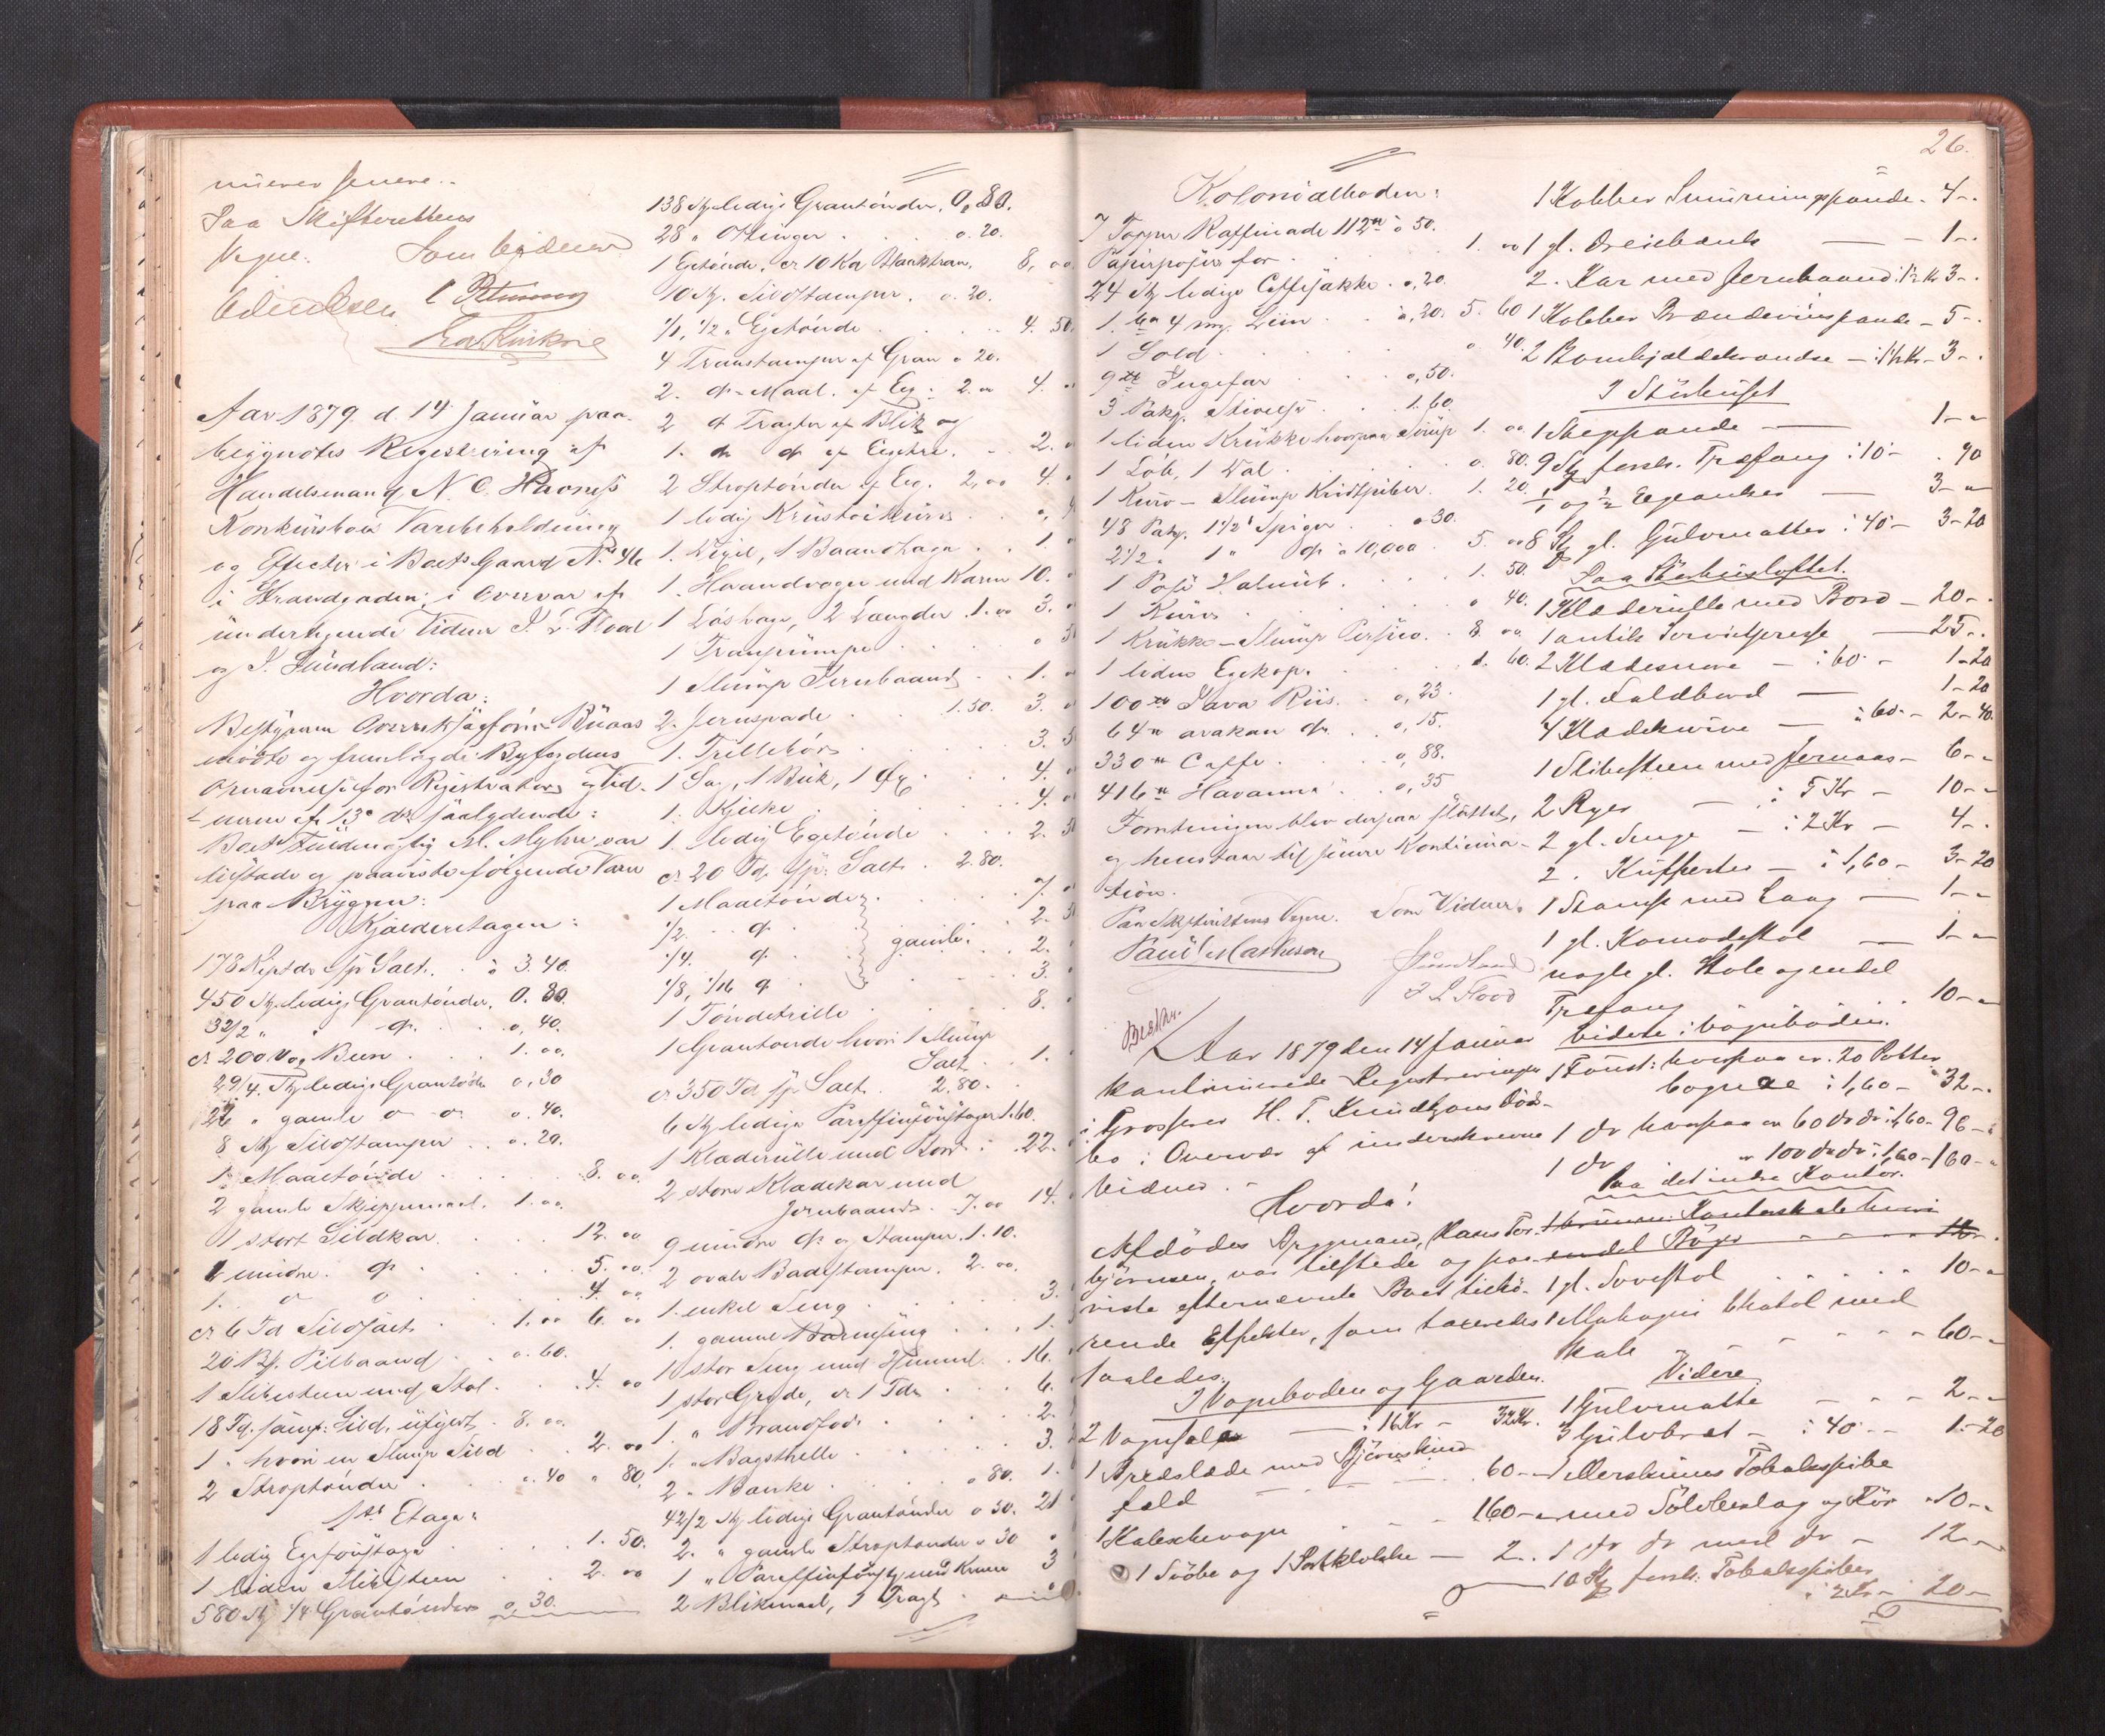 nüeren senere..
Paa Skifterettens
Vegne. Som Vidner
Aar 1879. d 14 Januar paa-
begyndtes Registrering af
Handelsmand N. C. 
Konkursboes Varebeholdning
og Effecter i Boets Gaard No 46
i Strandgaden; i Overvær af
underteg­nede Vidner J. L. Flood
og J. Sundland:
Hvorda:
Bestyreren Overretssagfører
mødte og fremlagde Byfogdens
Opnævnelse for Registrator og Vid-
nerne af 13de ds saalydende:
Boets Fuldmægtig M. Myhre var
tilstede og paaviste følgende Varer
paa Bryggen:
Kjælderetagen:
178 Sp Salt. à 3.40.
450 Stk ledige Grantønder. 0.80.
32/2 " " do. 0,40.
cr 200 Vog Been. 1.00.
29/4 Stk ledige Grantønder 0,30
22 " gamle do do 0.40.
8 Stk Sildstamper 0.20.
1 Maaltønde 8.00
2 gamle Skjeppemaal. 1.00.
1 stort Sildkar. 12.00
1 mindre do 5.00
1. do do 4.00
cr 6 Td Sildsalt. 1.00 6.00
20 Pilbaand 0.60.
1 Slibesteen med Stol. 4.00
18 Td. Sild, 8.00.
1 " hvori en Slump Sild 2.00
2 Stroptønder 0.40 " 80.
1ste Etage:
1 ledig Egefoustage 1.50.
1 liden Slibesteen 2.00
580 Stk 1/4 Grantønder 0,30.
138 Stk ledige Grantønder. 0,80.
28 " Ottinger 0.20.
1 Egetønde, cr 10 Ka Blanktran. 8,00
10 Stk. Sildstamper. 0.20.
1/1, 1/2 " Egetønde 4.50.
4 Transtamper af Gran 0.20.
2. do Maal. af Eg 2.00 4.
2 do Tragter af Blik og
1. do do af Egetræ. 2.
2 Stroptønder af Eg. 2,00 4.
1 ledig 
1. 1 Baandhage 1.
1. Haandvogn med Karm 10.
1 2 Længder 1.00 3.
1 Tranpumpe
1 Slump Jernbaand 1.
2. Jernspade 1.50. 3.
1. Trillebør 3.
1 Sag, 1 Buk, 1 Øx 4.
1. Kjeke 4.
1. ledig Egetønde 2.
cr 20 Td. Sp. Salt 2.80.
1 Maaltønde 7.
1/2 do 2.
1/4. do gamle. 2.
1/8, 1/16 do 3.
1 Tøndetrille 8.
1 Grantønde hvori 1 Slump
Salt 1.
cr 350 Td Sp Salt. 2.80.
6 Stk ledige Paraffinfoustager 1.60.
1 Klæderulle med Bord 22.
2 store Klædekar med
Jernbaand 7.00 14.
9 mindre do og Stamper. 1.10.
2 ovale Badestamper. 2.00.
1. enkel Seng 3.
1. gammel Barneseng 1.
1 stor Seng med Himmel 16.
1 stor Gryde, cr 1 Td 6.
1. " Brandfod 2.
1. " Bagsthelle 3.
2 " Bænke 0.80. 1.
42/2 Stk ledige Grantønder 0.50. 21
2. " gamle Stroptønder 0.30
1 " Paraffinfoustage med Kran 3
2 Blikmaal, 1 Tragt
26.
Kolonialboden:
7 Toppe Raffinade 112 à 50.
Papirposer for 1.00
24 Stk ledige Caffesække 0,20.
1 Liin à,20. 5.60
1 Sold. 0.40.
9 Ingefær 0,50.
3 Pakker Stivelse 1.60.
1 liden Krukke hvorpaa Sirup 1.00
1 Lob, 1 Dal 0.80.
1 Kurv Slump Kridtpiber 1.20.
48 Pakker 1 1/2" Spiger 0.30.
21/2 1" do à 10,000 5.00
1 Pose Halmub 1.50.
1 Kurv 0.40.
1 Krukke Slump Persico. 8.00
1 liden Egekop. 1.60.
100 Java Riis. 0,23.
64 arakan do. 0,15.
330 Caffe. 0,88.
416 Havanna 0,35
Forretningen blev derpaa sluttet,
og henstaar til senere Kontinua-
tion.
Paa Skifterettens Vegne. Som Vidner.
Paul Mathesen JSundland
J L Flood
Beskr.
Aar 1879 den 14 Januar
kontinuerede Registreringen
i Grosserer H. T. Knudtzons Døds-
bo i Overvær af underskrevne
Vidner.-
Hvorda!
Afdødes Bryggemand, Hans Tor-
bjørnsen, var tilstede og paa-
viste efternævnte Boet tilhø-
rende Effekter, som taxeredes
saaledes.
I Vognboden og Gaarden.
2 Vognsæler à 16 Kr - 32 Kr.
1 Bredslæde med Bjørneskind
fæld 60-
1 Kalechevogn 160-
1 Svøbe og 1 2.
1 Kobber Smurningspande - 4-.
1 gl. Dreiebænk 1-.
2. Kar med Jernbaand à 1 1/2 Kr 3-.
1 Kobber Brændeviinspande - 5-.
2 Bomhjældekrandse - à 1 1/2 Kr - 3-.
I Störhuset
1 Stegepande 1-"
9 Stk forsk. Træfang à 10- . 90
1/1 og 1/2 Egeanker 3-"
8 Stk gl. Gulvmatter à 40- 3-20
Paa Störhusloftet.
1 Klæderulle med Bord - 20-.
1 antik Servietpresse 25-.
2 Klædesnore - à 60 - 1-20
1 gl. Faldbord 1-20
4 Klædekurve à 60 - 2-40.
1 Slibesteen med Jernaas - 6-"
2 Ryer à 5 Kr - 10-"
2 gl. Senge - à 2 Kr - 4-.
2. Kufferter - à 1,60 - 3-20
1 Stamp med Laag - 1-"
1 gl. Komodestol 1-"
nogle gl. Stole og endel
Træfang 10-"
Videre i Vognboden.
1 Foust: hvorpaa er 20 Potter
Cognac à 1,60 - 32-.
1 do hvorpaa er 60 do do à 1,60 - 96-"
1 do " 100 do do à 1,60 - 160-"
Paa det indre Kontor.
1 brunm: Kontorskab hvori
endel Bøger
1 gl. Sovestol 10-"
1 Mahogni Chatol med
Skab 60-"
Videre.
1 Gulvmatte 2-"
3 Gulvbræt - à 40 - 1-20
1 Merskums Tobakspibe
med Sölvbeslag og Rör 10-"
1 do do med do - 12-"
10 Stk forsk: Tobakspiber
à 2 Kr - 20-